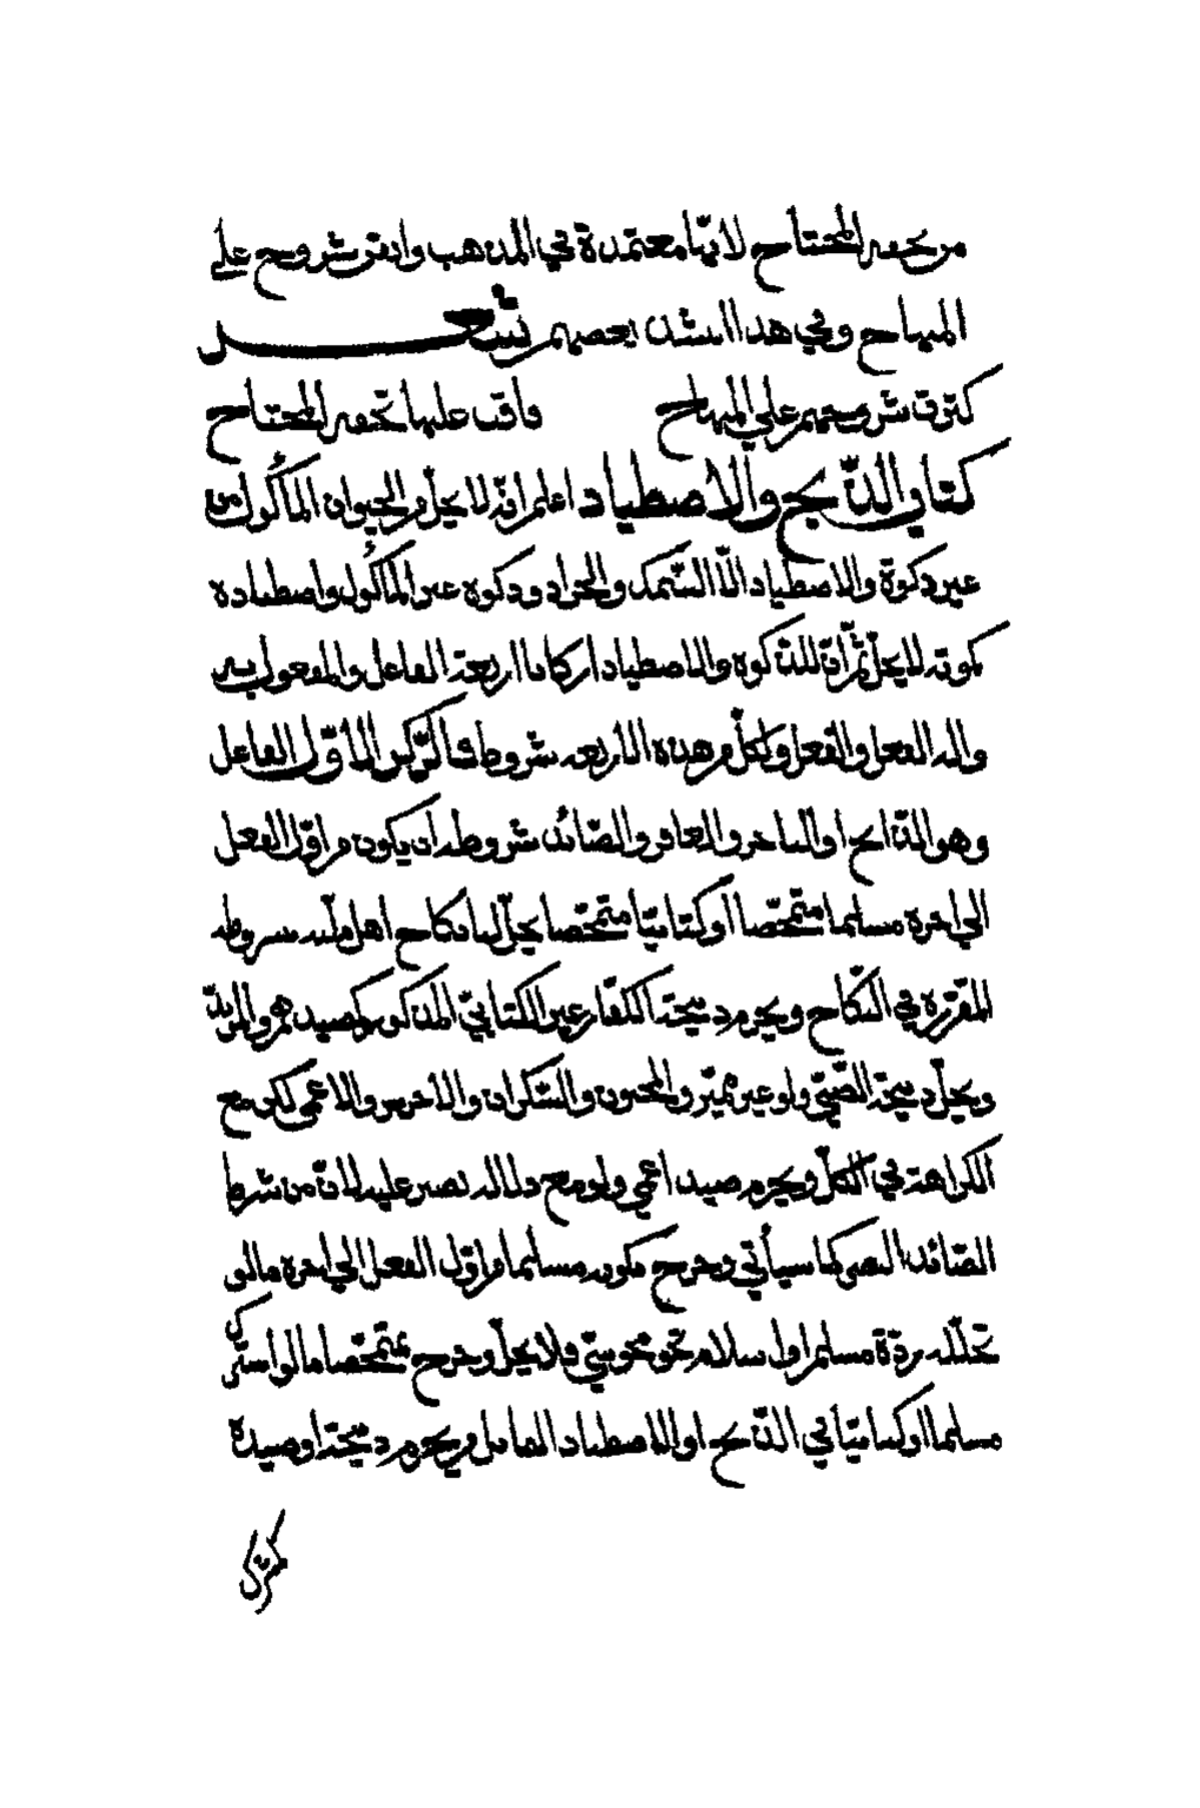 من تحفة المحتاج لانها معتمدة في المذهب وادق شروح على
المنهاج وفي هذا انشد بعضهم شعر
كثرت شروحهم على المنهاج فاقت عليها تحفة المحتاج
كتاب الذّبح والاصطياد اعلم انّه لا يحلّ من الحيوان المأكول من
غير ذكوة والاصطياد الّا السّمك والجراد وذكوة غير المأكول واصطياده
كموته لا يحلّ ثمّ انّ للذّكوة والاصطياد اركانا اربعة الفاعل والمفعول به
والة الفعل والفعل ولكلّ من هذه الاربعة شروط فالرّكن الاوّل الفاعل
وهو الذّابح او الناحر والعاقر والصّائد شروطه ان يكون من اوّل الفعل
الى اخره مسلما متمحّضا او كتابيّا متمحّضا يحلّ لنا نكاح اهل ملّته بشروطه
المقرّرة في النّكاح ويحرم ذبيحة الكفّار غير الكتابيّ المذكور كصيدهم والمرتدّ
ويحلّ ذبيحة الصّبيّ ولو غير مميّز والمجنون والسّكران والاخرس والاعمى لكن مع
الكراهة في الكلّ ويحرم صيد اعمى ولو مع دلالة بصير عليه لانّ من شرط
الصّائد البصر كما سيأتي وخرج بكونه مسلما من اوّل الفعل الى اخره ما لو
تخلّله ردّة مسلم او اسلام نحو مجوسيّ فلا يحلّ وخرج بمتمحّضا ما لو اشترك
مسلما او كتابيّا في الذّبح او الاصطياد القاتل فيحرم ذبيحة او صيده